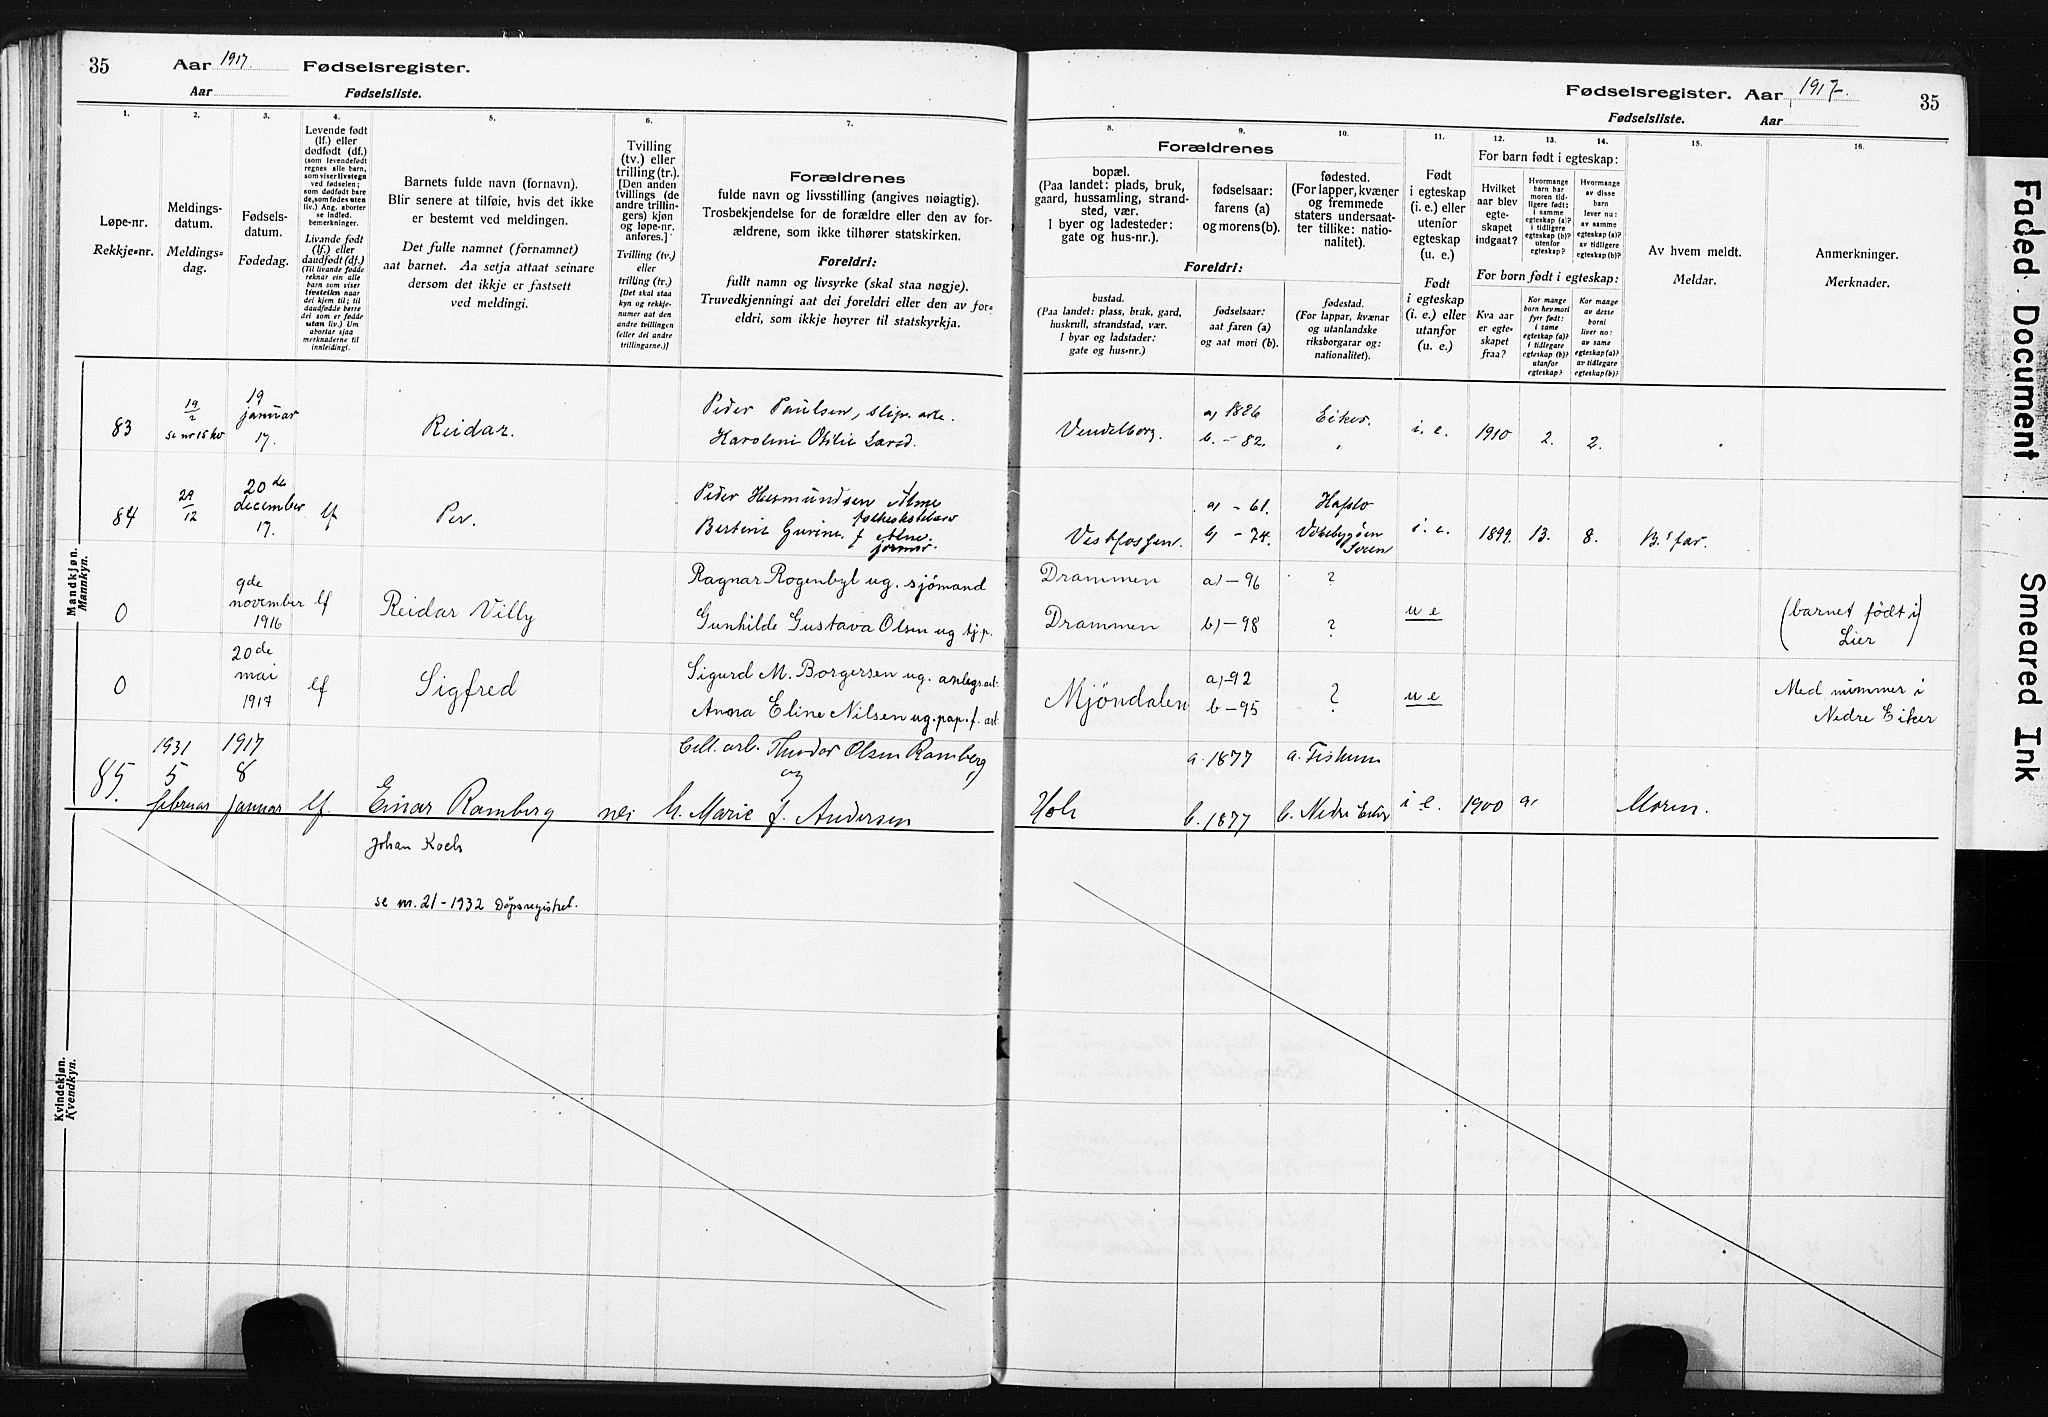 35 Aar 1917. Fødselsregister.
Aar Fødselsliste.
Fødselsregister. Aar 1917. 35
Fødselsliste. Aar
1. 2. 3. 4. 5. 6. 7.
Løpe-nr.
Rekkje-nr.
Meldings-
datum.
Meldings-
dag.
Fødsels-
datum.
Fødedag.
Levende født
(lf.) eller
dødfødt (df.)
(som levendefødt
regnes alle barn,
som viser livstegn
ved fødselen;
som dødfødt bare
de, som fødes uten
liv.) Ang. aborter
se indled.
bemerkninger.
Livande født
(lf.) eller
daudfødt (df.)
(Til livande fødde
reknar ein alle
barn som viser
livsteikn naar
dei kjem til; til
daudfødde berre
dei som er fødde
utan liv.) Um
abortar sjaa
merknaderne til
innleidingi.
Barnets fulde navn (fornavn).
Blir senere at tilføie, hvis det ikke
er bestemt ved meldingen.
Det fulle namnet (fornamnet)
aat barnet. Aa setja attaat seinare
dersom det ikkje er fastsett
ved meldingi.
Tvilling
(tv.) eller
trilling (tr.).
[Den anden
tvillings (de
andre trillin-
gers) kjøn
og løpe-nr.
anføres.]
Tvilling (tv.)
eller
trilling (tr.)
[Det skal staa
kyn og rekkje-
numer aat den
andre tvillingen
(eller dei andre
trillingarne.)]
Forældrenes
fulde navn og livsstilling (angives nøiagtig).
Trosbekjendelse for de forældre eller den av for-
ældrene, som ikke tilhører statskirken.
Foreldri:
fullt namn og livsyrke (skal staa nøgje).
Truvedkjenningi aat dei foreldri eller den av for-
eldri, som ikkje høyrer til statskyrkja.
8. 9. 10. 11. 12. 13. 14. 15. 16.
Forældrenes
bopæl.
(Paa landet: plads, bruk,
gaard, hussamling, strand-
sted, vær.
I byer og ladesteder:
gate og hus-nr.).
fødselsaar:
farens (a)
og morens (b).
fødested.
(For lapper, kvæner
og fremmede
staters undersaat-
ter tillike: natio-
nalitet).
Foreldri:
bustad.
(Paa landet: plass, bruk, gard,
huskrull, strandstad, vær.
I byar og ladstader:
gate og hus-nr.)
fødselsaar:
aat faren (a)
og aat mori (b).
fødestad.
(For lappar, kvænar
og utanlandske
riksborgarar og:
nationalitet).
Født
i egteskap
(i. e.) eller
utenfor
egteskap
(u. e.)
Født
i egteskap
(i. e.) eller
utanfor
(u. e.)
For barn født i egteskap:
Hvilket
aar blev
egte-
skapet
indgaat?
Hvormange
barn har
moren tid-
ligere født:
i samme
egteskap (a)?
i tidligere
egteskap (b)?
utenfor
egteskap?
Hvormange
av disse
barn
lever nu:
av samme
egteskap (a)?
av tidligere
egteskap (b)?
For born født i egteskap:
Kva aar
er egte-
skapet
fraa?
Kor mange
born hev mori
fyrr født:
i same
egteskap (a)?
i tidlegare
egteskap (b)?
utanfor
egteskap?
Kor mange
av desse
borni
liver no:
av same
egteskap (a)?
av tidlegare
egteskap (b)?
Av hvem meldt.
Meldar.
Anmerkninger.
Merknader.
Mandkjøn.
Mannkyn.
83 19/2 19 januar 17. Reidar. Peder Paulsen, slip. arb.
Karoline Otilie Larsd. Vendelborg. a) 1826 b. - 82. Eiker. i. e. 1910 2. 2.
84 29/12 20de december 17. lf Per. Peder Hermundsen Alme
Bertine Gurine f.
Vestfossen. a) - 61. b) - 74. Hafslo
i. e. 1899. 13. 8. B.s far.
0 9de november 1916 lf Reidar Villy Ragnar Rogenbyl ug. sjömand
Gunhilde Gustava Olsen ug tjp. Drammen a) - 96 ?
Drammen b) - 98 ? u e (barnet födt i Lier)
0 20de mai 1917 lf Sigfred Sigurd M. Borgersen ug. anlegs.arb.
Anna Eline Nilsen ug. pap. f. arb. Mjöndalen a) - 92 b - 95 ? u e Med nummer i
Nedre Eiker
85. 1931 5 februar 1917 8 januar lf. Einar Ramberg nei Cell. arb. Theodor Olsen Ramberg
og
h. Marie f. Andersen Hols a. 1877 b. 1877 a. Fiskum b. Nedre Eiker i e. 1900 Moren.
Johan Koels
se nr. 21 - 1932 Döpsregistret.
Kvindekjøn.
Kvendkyn.
Faded Document
Smeared Ink